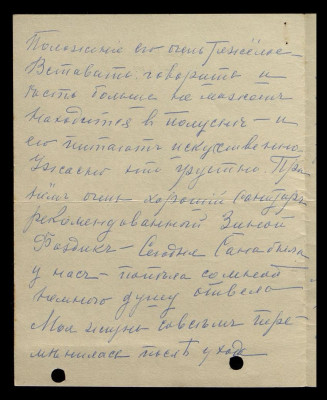 Положение его очень тяжёлое
Вставать говорить и
ѣсть больше не можетъ
находится в полуснѣ — и
его питаютъ искусственно.
Ужасно это грустно. При
нёмъ очень хорошій санитаръ
рекомендованный Зиной
Сегодня Сана была
у насъ — попила со мной
немного душу отвела
Моя жизнь совсѣмъ пере-
мѣнилась послѣ ухода